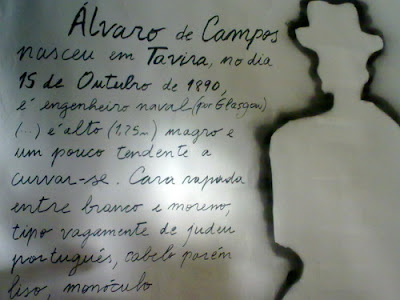 Álvaro de Campos
nasceu em Tavira, no dia
15 de Outubro de 1890,
é engenheiro naval (por Glasgow)
(...) é alto (1,75m) magro e
um pouco tendente a
curvar-se. Cara rapada
entre branco e moreno,
tipo vagamente de judeu
português, cabelo porém
liso, monóculo